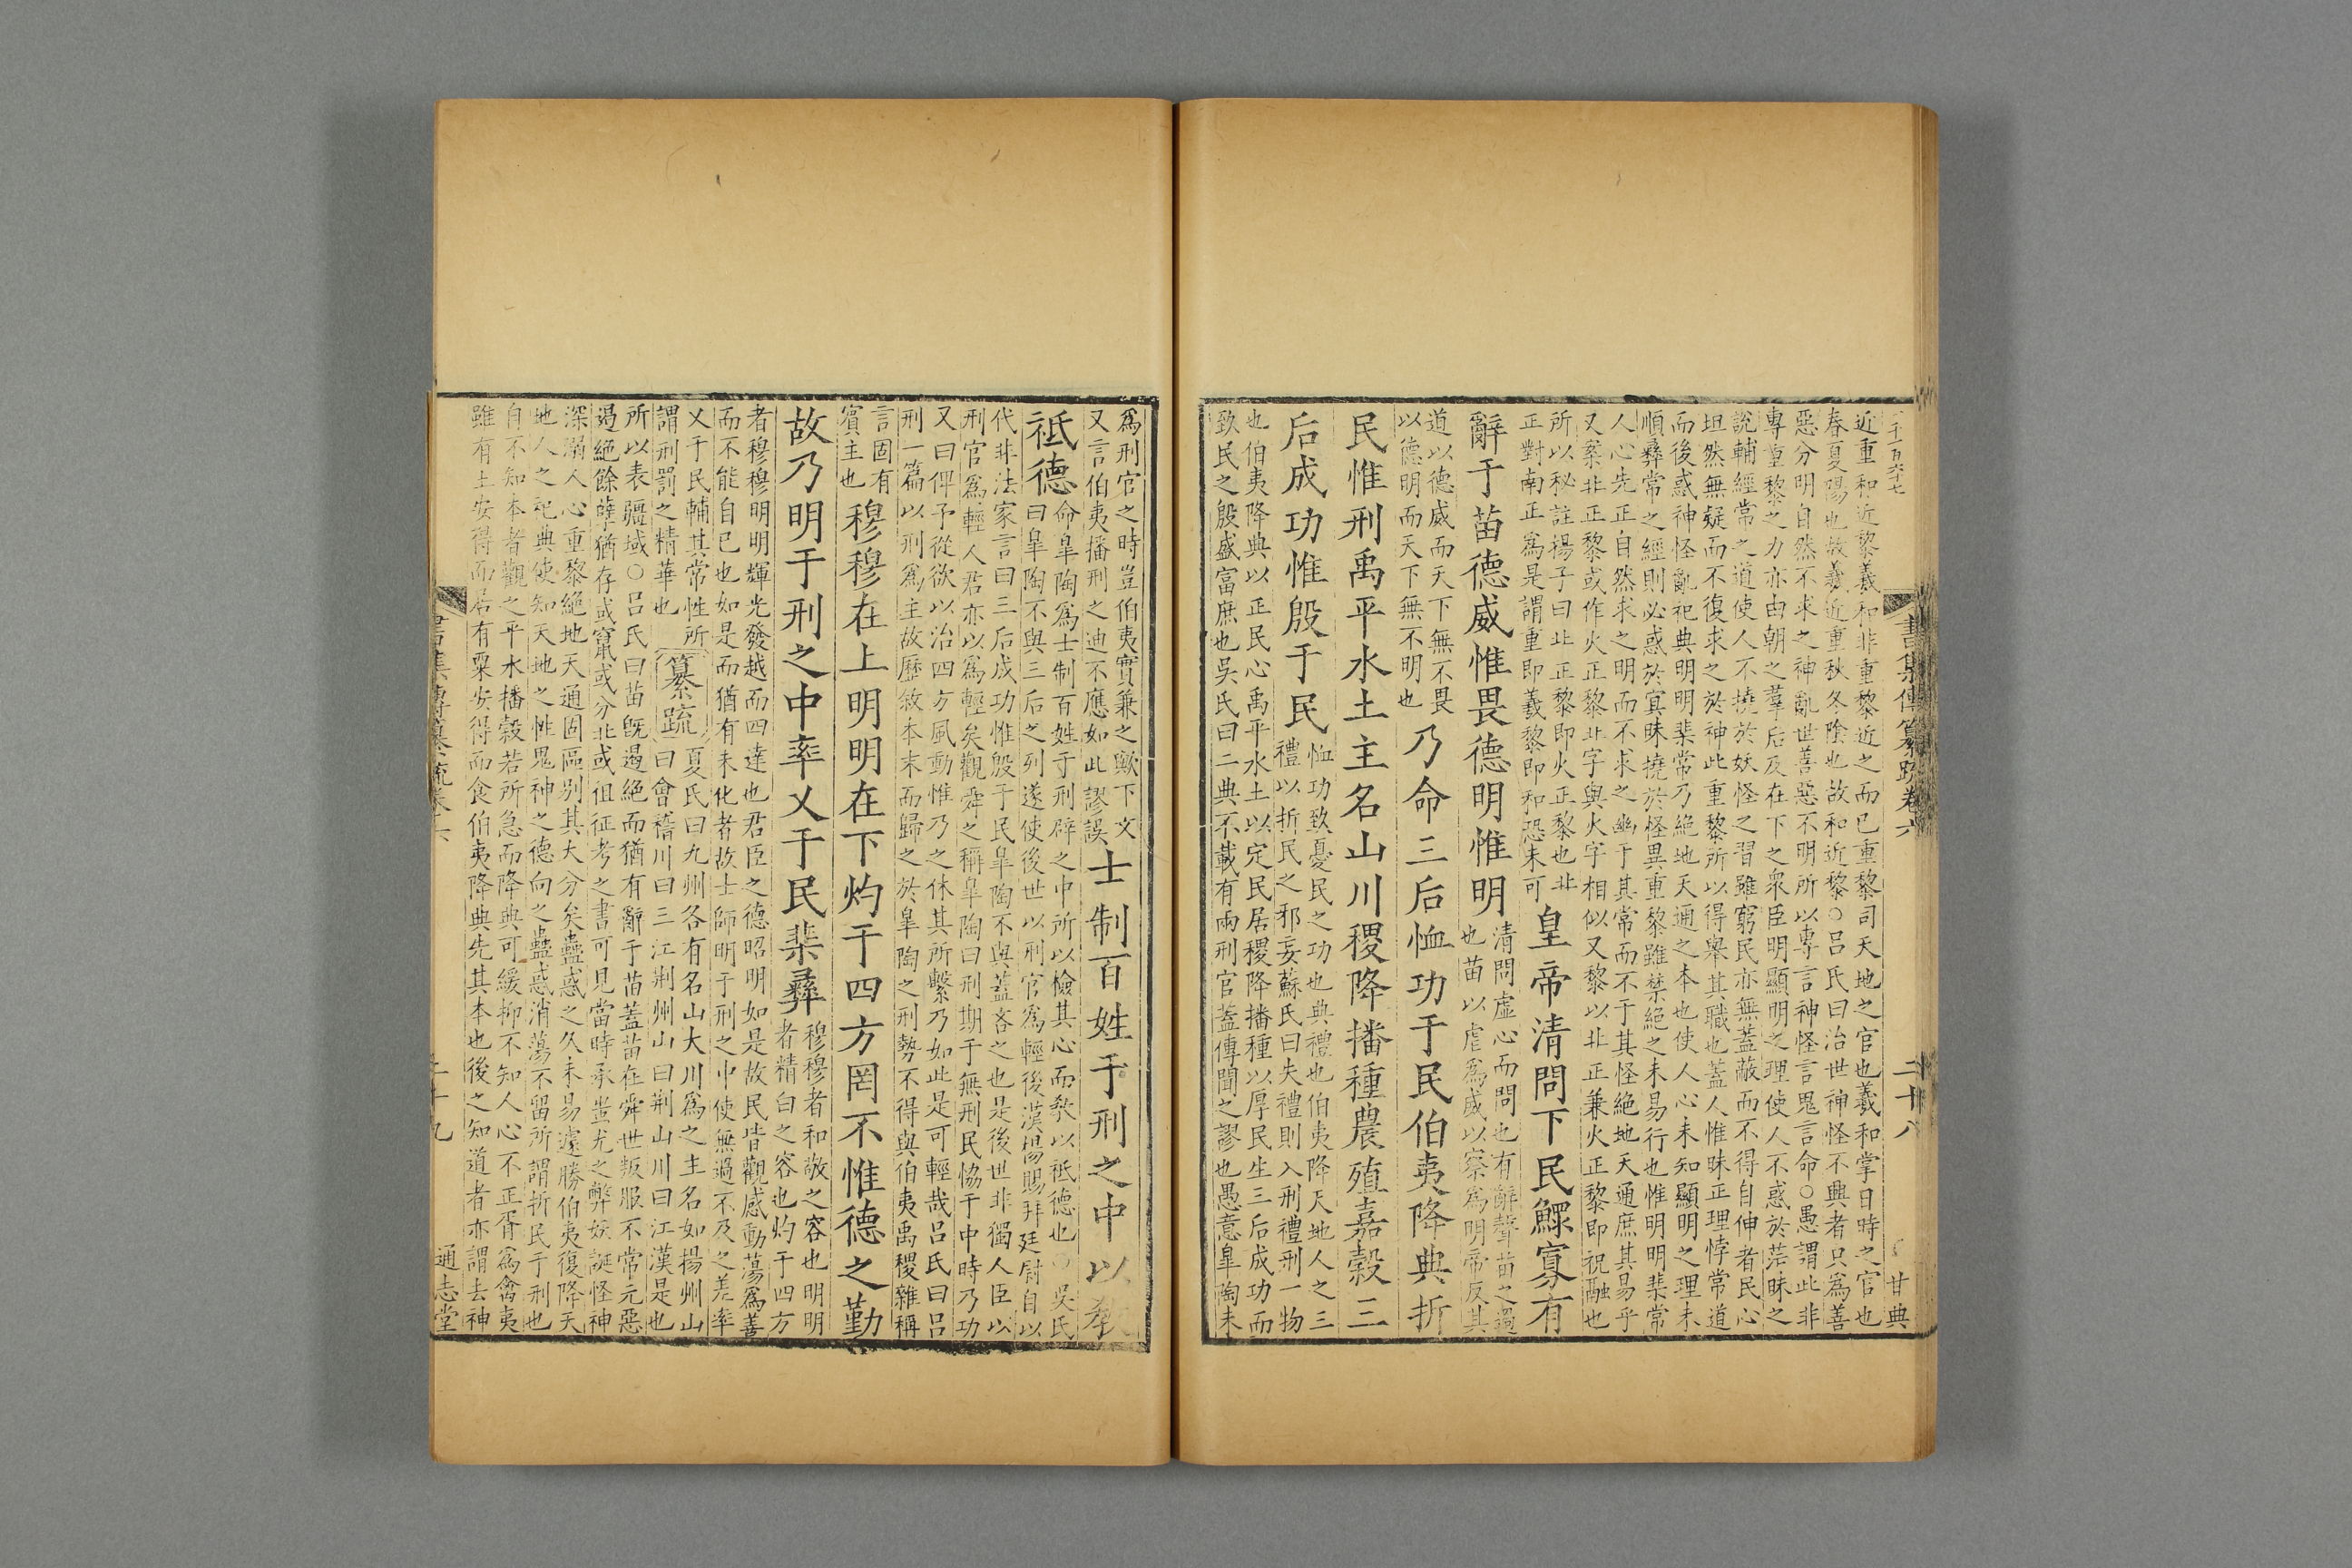 近重和近黎羲和非重黎近之而已重黎司天地之官也羲和掌日時之官也
春夏陽也故羲近重秋冬陰也故和近黎○呂氏曰治世神怪不興者只為善
惡分明自然不求之神亂世善惡不明所以專言神怪言鬼言命○愚謂此非
專重黎之力亦由朝之羣后及在下之衆臣明顯明之理使人不惑於茫昧之
說輔經常之道使人不撓於妖怪之習雖窮民亦無蓋蔽而不得自伸者民心
坦然無疑而不復求之於神此重黎所以得舉其職也蓋人惟昧正理悖常道
而後惑神怪亂祀典明明棐常乃絶地天通之本也使人心未知顯明之理未
順彞常之經則必惑於冥昧撓於怪異重黎雖禁絶之未易行也惟明明棐常
人心先正自然求之明而不求之幽于其常而不于其怪絶地天通庶其易乎
又案北正黎或作火正黎北字與火字相似又黎以北正兼火正黎即祝融也
所以秘註揚子曰北正黎即火正黎也北
正對南正為是謂重即羲黎即和恐未可
皇帝清問下民鰥寡有
辭于苗德威惟畏德明惟明
清問虛心而問也有辭聲苗之過
也苗以虐為威以察為明帝反其
道以德威而天下無不畏
以德明而天下無不明也
乃命三后恤功于民伯夷降典折
民惟刑禹平水土主名山川稷降播種農殖嘉穀三
后成功惟殷于民
恤功致憂民之功也典禮也伯夷降天地人之三
禮以折民之邪妄蘇氏曰失禮則入刑禮刑一物
也伯夷降典以正民心禹平水土以定民居稷降播種以厚民生三后成功而
致民之殷盛富庶也吳氏曰二典不載有兩刑官蓋傳聞之謬也愚意臯陶未
書集傳纂疏卷六
二十八
甘典
為刑官之時豈伯夷實兼之歟下文
又言伯夷播刑之迪不應如此謬誤
士制百姓于刑之中以教
祗德
命臯陶為士制百姓于刑辟之中所以檢其心而教以祗德也○吳氏
曰臯陶不與三后之列遂使後世以刑官為輕後漢楊賜拜廷尉自以
代非法家言曰三后成功惟殷于民臯陶不與蓋吝之也是後世非獨人臣以
刑官為輕人君亦以為輕矣觀舜之稱臯陶曰刑期于無刑民恊于中時乃功
又曰俾予從欲以治四方風動惟乃之休其所繫乃如此是可輕哉呂氏曰呂
刑一篇以刑為主故歷敘本末而歸之於臯陶之刑勢不得與伯夷禹稷雜稱
言固有
賓主也
穆穆在上明明在下灼于四方罔不惟德之勤
故乃明于刑之中率乂于民棐彞
穆穆者和敬之容也明明
者精白之容也灼于四方
者穆穆明明輝光發越而四達也君臣之德昭明如是故民皆觀感動蕩為善
而不能自已也如是而猶有未化者故士師明于刑之中使無過不及之差率
乂于民輔其常性所
謂刑罰之精華也
纂疏
夏氏曰九州各有名山大川為之主名如揚州山
曰會稽川曰三江荆州山曰荆山川曰江漢是也
所以表疆域○呂氏曰苗旣遏絶而猶有辭于苗蓋苗在舜世叛服不常元惡
遏絶餘孽猶存或竄或分北或徂征考之書可見當時承蚩尤之弊妖誕怪神
深溺人心重黎絶地天通固區别其大分矣蠱惑之久未易遽勝伯夷復降天
地人之祀典使知天地之性鬼神之德向之蠱惑消蕩不留所謂折民于刑也
自不知本者觀之平水播榖若所急而降典可緩抑不知人心不正胥為禽夷
雖有土安得而居有粟安得而食伯夷降典先其本也後之知道者亦謂去神
通志堂